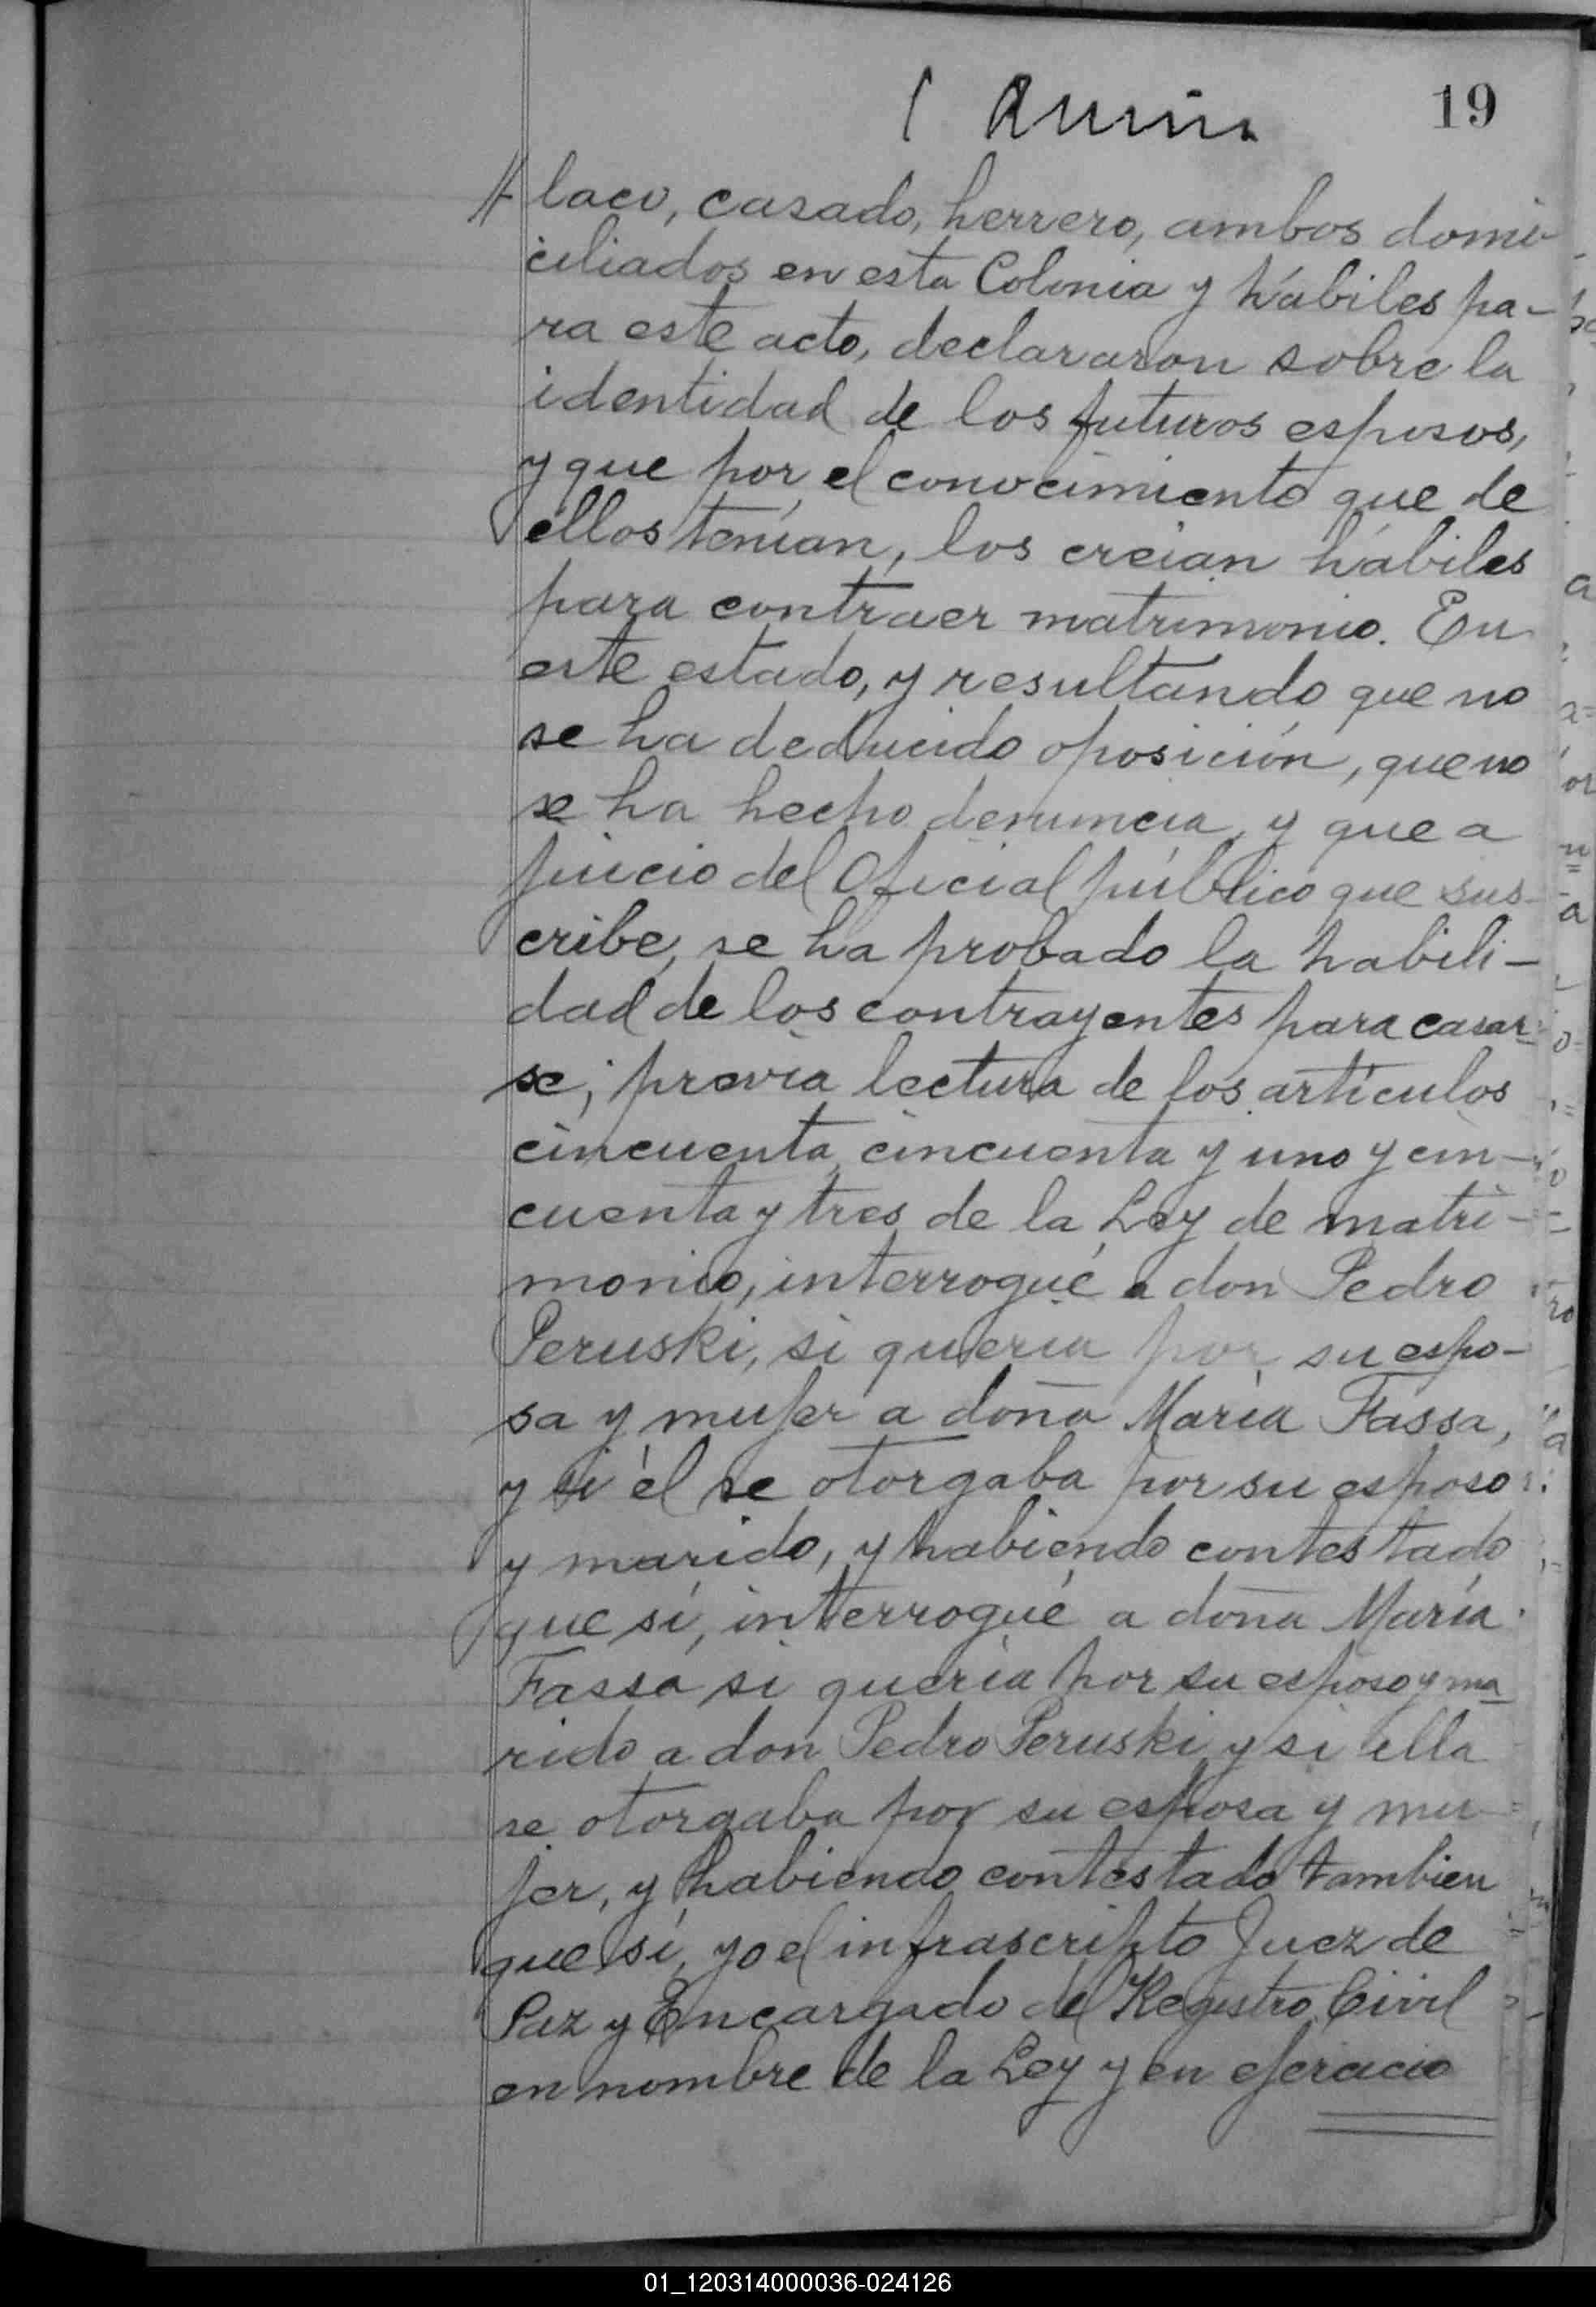 19
laco, casado, herrero, ambos domi-
ciliados en esta Colonia y hábiles pa-
ra este acto, declararon sobre la
identidad de los futuros esposos,
y que por el conocimiento que de
ellos tenían, los creían hábiles
para contraer matrimonio. En
este estado, y resultando que no
se ha deducido oposición, que no
se ha hecho denuncia, y que a
juicio del Oficial público que sus-
cribe, se ha probado la habili-
dad de los contrayentes para casar-
se; previa lectura de los artículos
cincuenta, cincuenta y uno y cin-
cuenta y tres de la Ley de matri-
monio, interrogué a don Pedro
Peruski, si quería por su espo-
sa y mujer a doña María Fassa,
y si él se otorgaba por su esposo
y marido, y habiendo contestado
que sí, interrogué a doña María
Fassa si quería por su esposo y ma
rido a don Pedro Peruski y si ella
se otorgaba por su esposa y mu-
jer, y habiendo contestado tambien
que sí, yo el infrascripto Juez de
Paz y Encargado del Registro Civil
en nombre de la Ley y en ejercicio
01_120314000036-024126